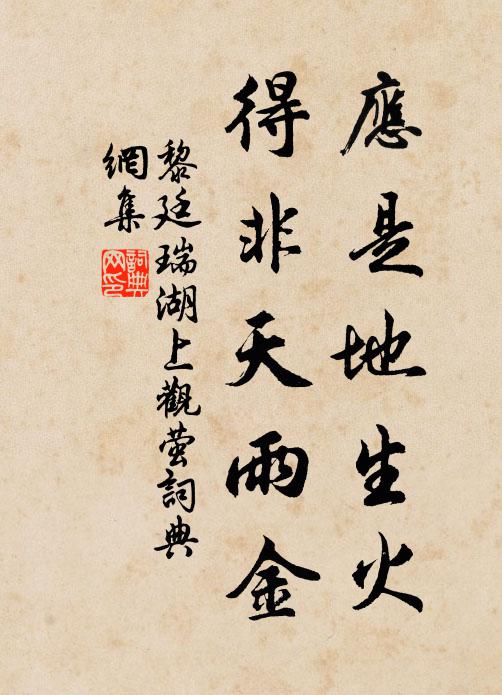 應是地生火
得非天雨金
黎廷瑞湖上觀萤詞典
網集
詞典
网印